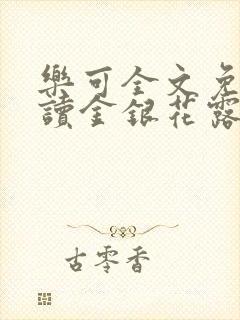 樂可全文免
讀金銀花露
古零香